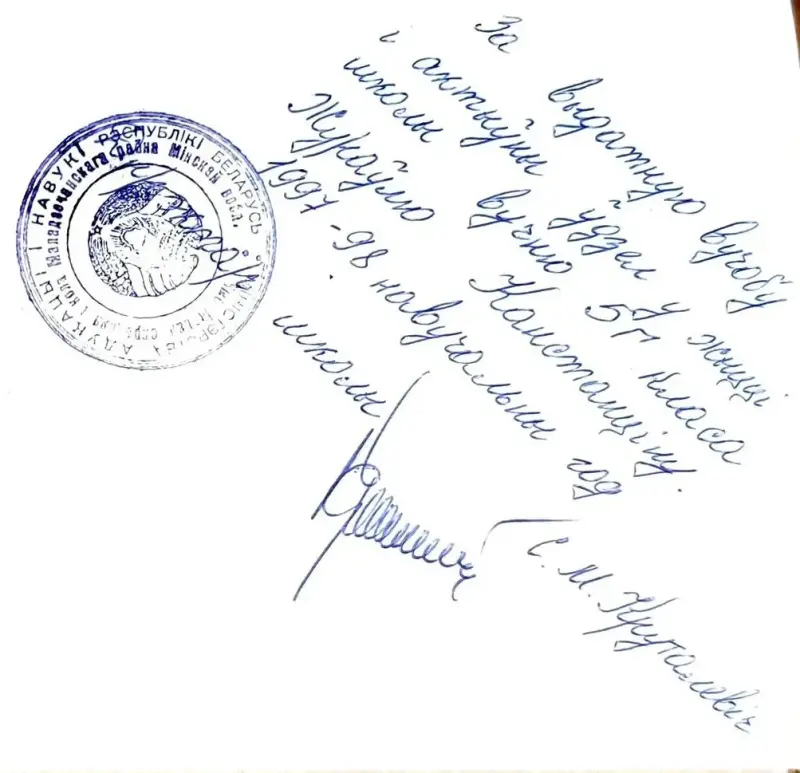 За выдатную вучобу
і актыўны ўдзел у жыцці
школы вучню 5"Г" класа
Жукаўцю Канстанціну.
1997-98 навучальны год
школы
С. М. Круталевіч
МІНІСТЭРСТВА АДУКАЦЫІ І НАВУКІ РЭСПУБЛІКІ БЕЛАРУСЬ
Маладзечанскага раёна Мінскай вобл.